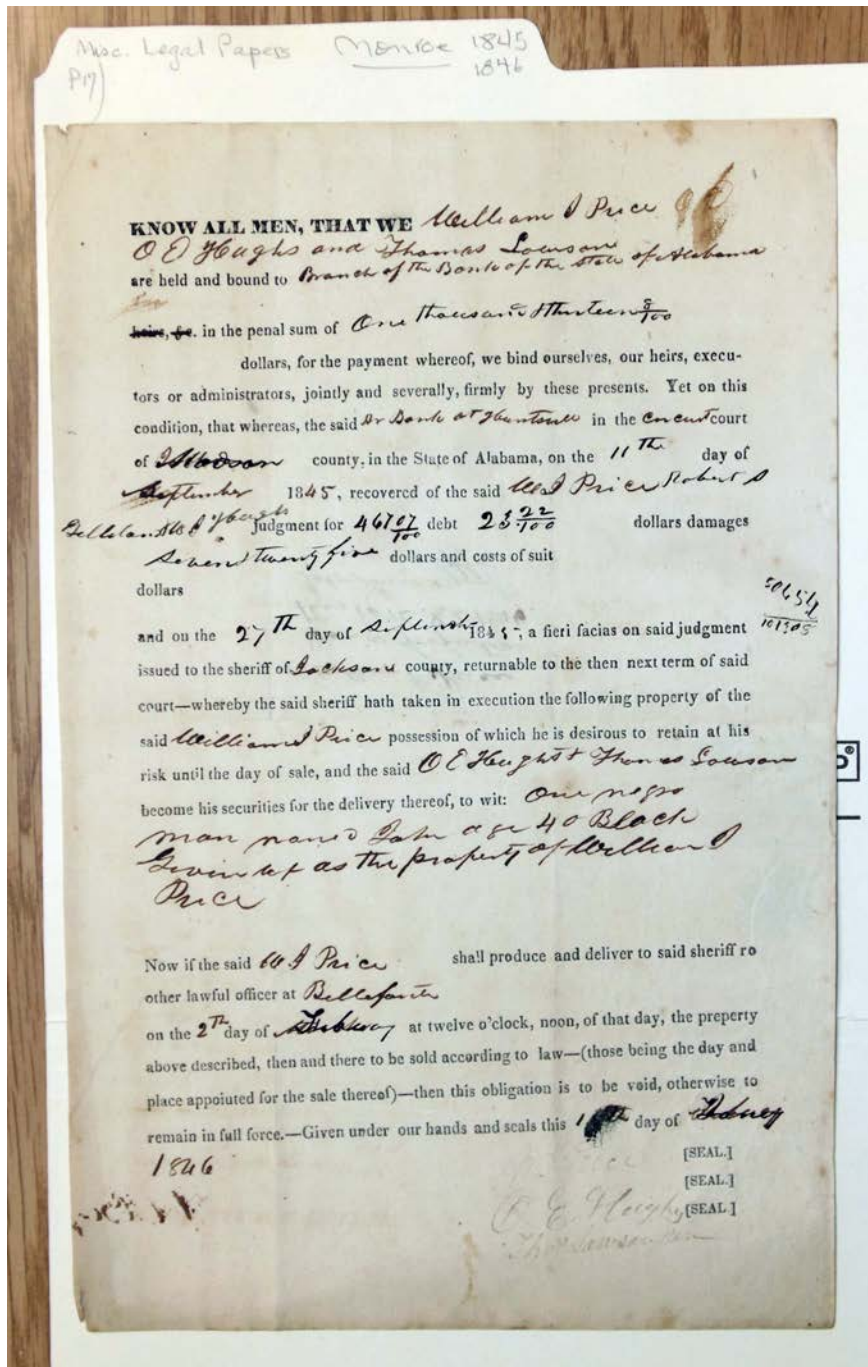 Misc. Legal Papers Monroe 1845
P17) 1846
KNOW ALL MEN, THAT WE William J Price
O E Hughs and Thomas Lowson
are held and bound to Branch of the Bank of the State of Alabama
heirs, &c. in the penal sum of One thousand & thirteen 8/100
dollars, for the payment whereof, we bind ourselves, our heirs, execu-
tors or administrators, jointly and severally, firmly by these presents. Yet on this
condition, that whereas, the said Br Bank at Huntsvill in the Circuit court
of county, in the State of Alabama, on the 11th day of
September 1845, recovered of the said W J Price Robert S
judgment for 467 07/100 debt 23 22/100 dollars damages
Seven twenty five dollars and costs of suit
dollars
50654
101305
and on the 27th day of 1845, a fieri facias on said judgment
issued to the sheriff of Jackson county, returnable to the then next term of said
court—whereby the said sheriff hath taken in execution the following property of the
said William J Price possession of which he is desirous to retain at his
risk until the day of sale, and the said O E Hughs & Thomas Lowson
become his securities for the delivery thereof, to wit: One negro
man named John age 40 Black
Given up as the property of William J
Price
Now if the said W J Price shall produce and deliver to said sheriff ro
other lawful officer at Bellefonte
on the 2th day of at twelve o'clock, noon, of that day, the preperty
above described, then and there to be sold according to law—(those being the day and
place appoiuted for the sale thereof)—then this obligation is to be void, otherwise to
remain in full force.—Given under our hands and seals this day of
1846 [SEAL.]
[SEAL.]
O E Hughs [SEAL.]